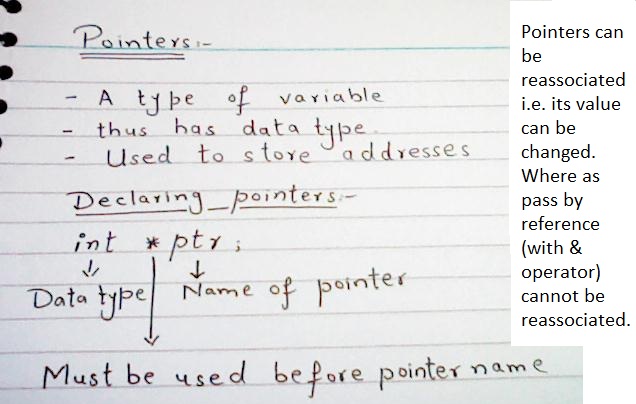 Pointers:-
- A type of variable
- thus has data type.
- Used to store addresses
Declaring pointers:-
int * ptr ;
Data type Name of pointer
Must be used before pointer name
Pointers can
be
reassociated
i.e. its value
can be
changed.
Where as
pass by
reference
(with &
operator)
cannot be
reassociated.